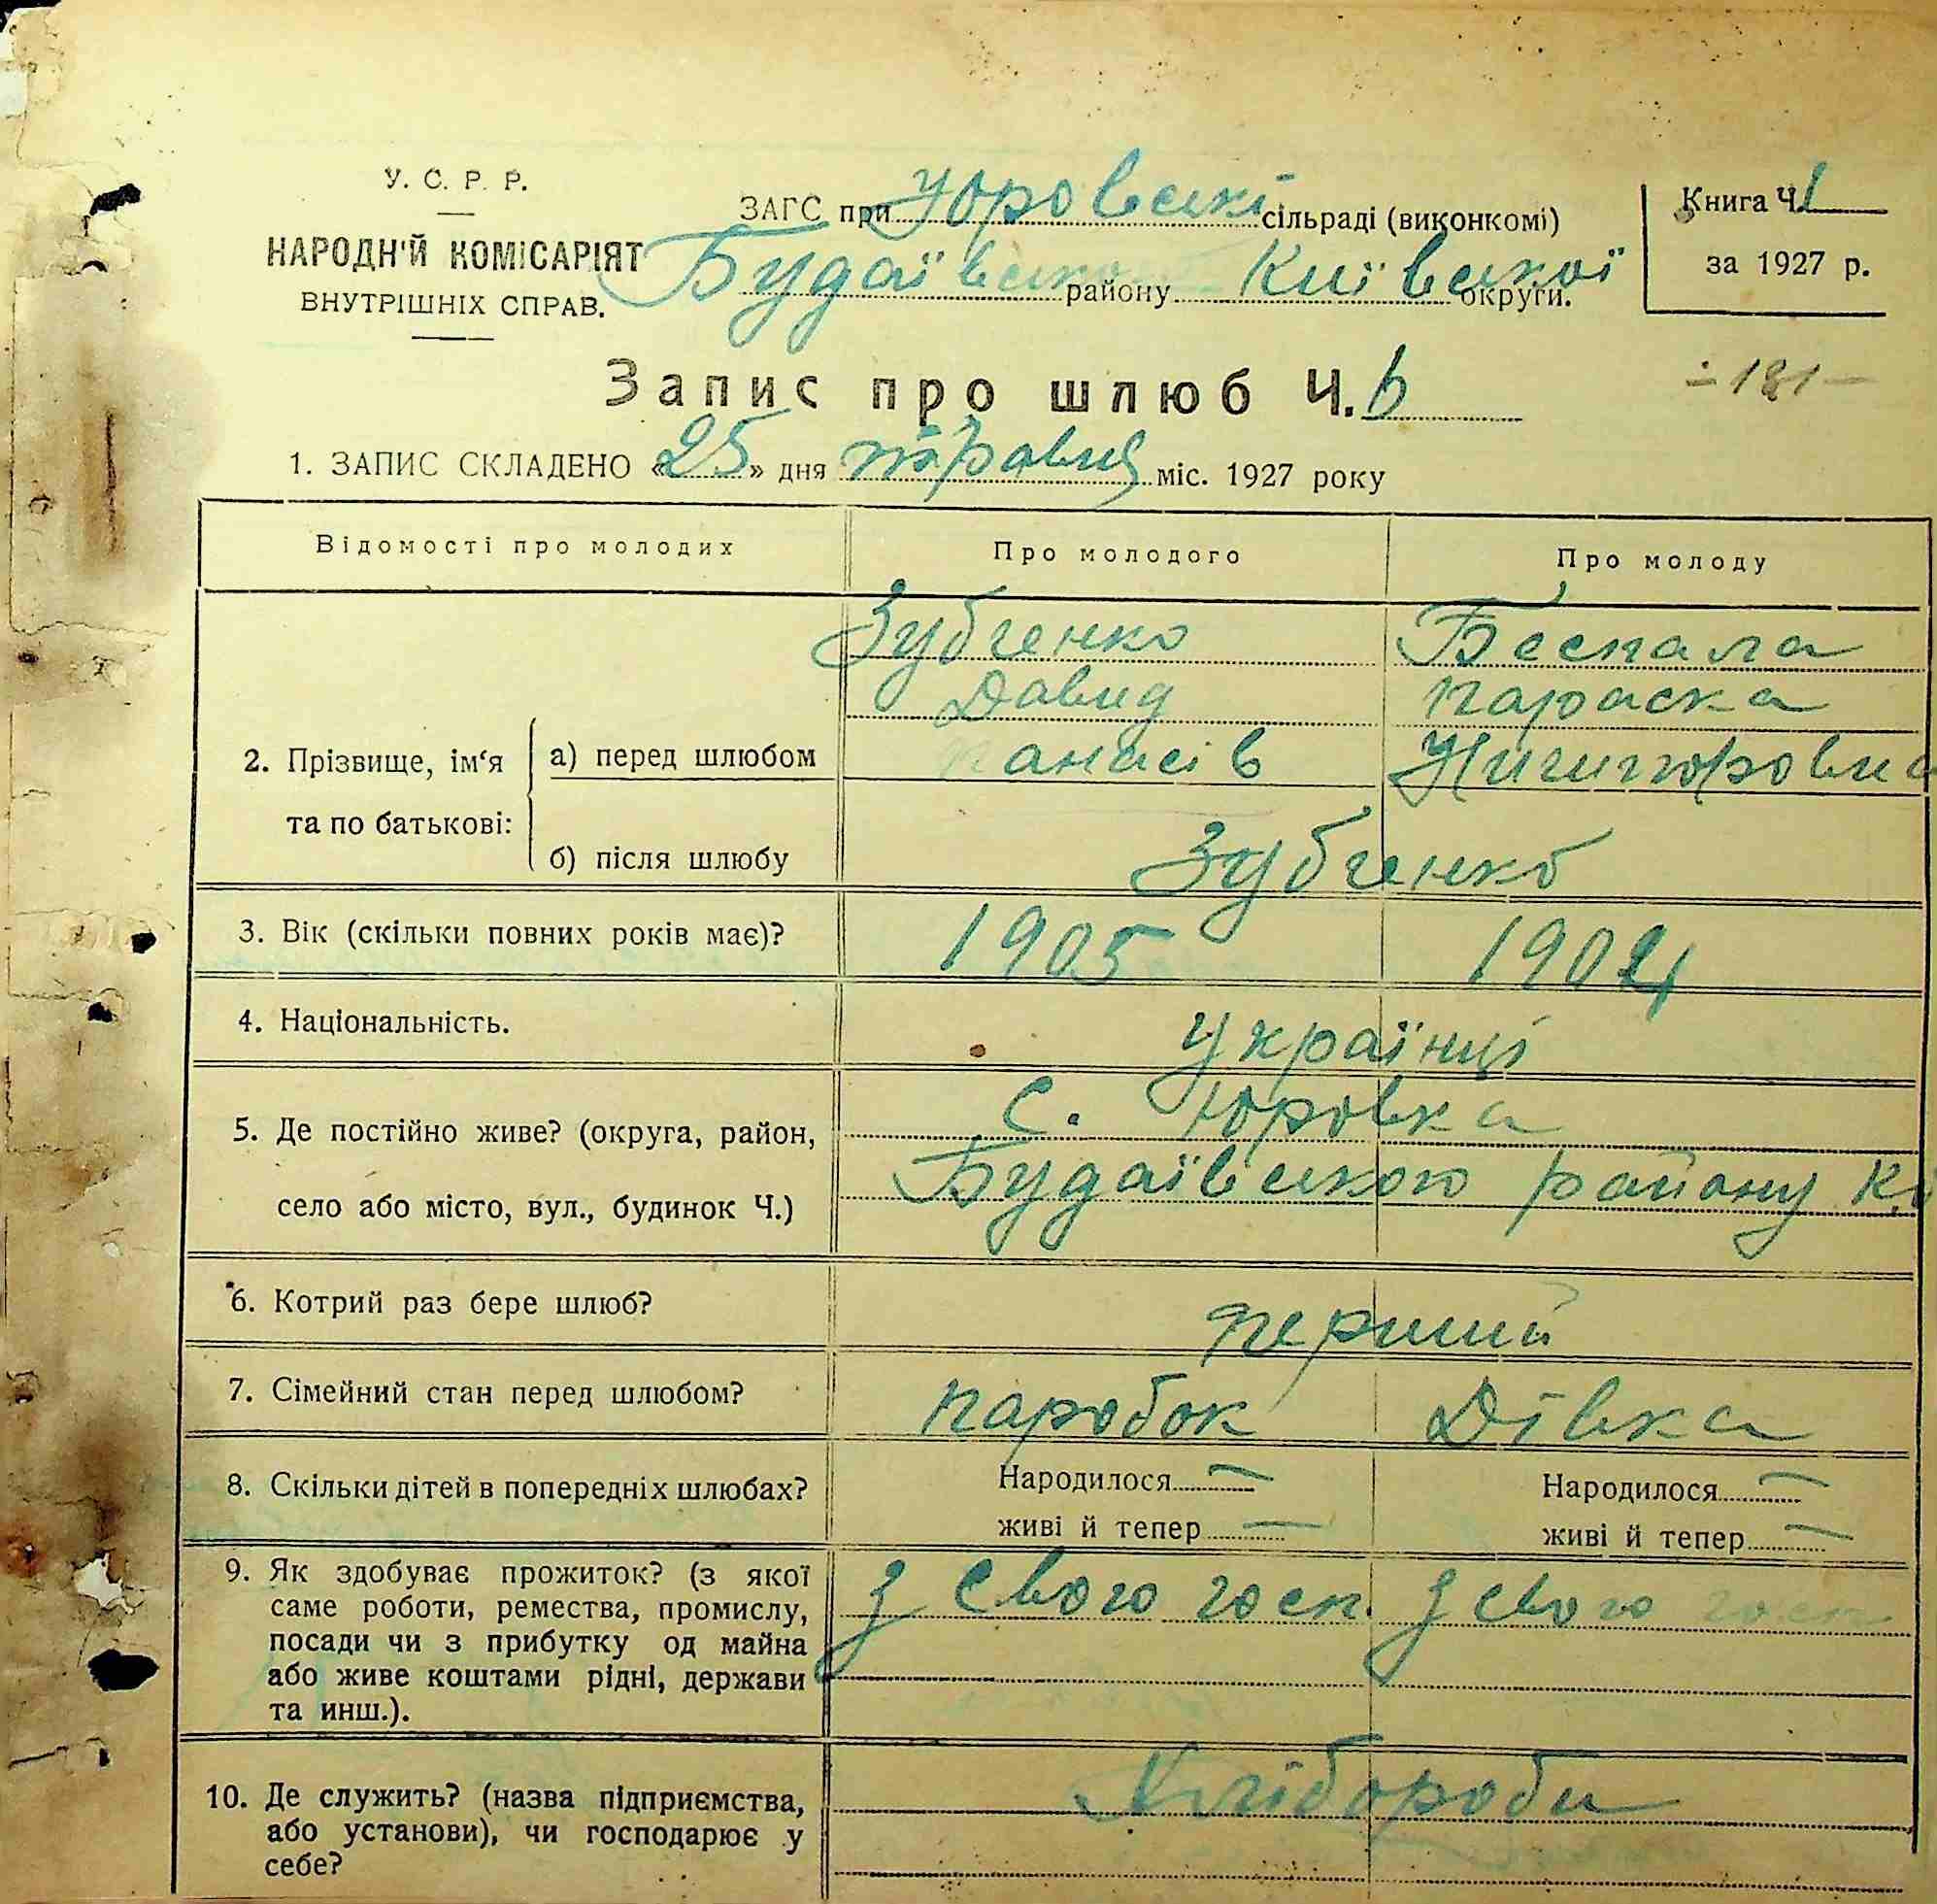 У. С. Р. Р.
НАРОДН'Й КОМІСАРІЯТ
ВНУТРІШНІХ СПРАВ.
ЗАГС при Юровскі сільраді (виконкомі)
Будаївсько району Київської округи.
Книга Ч. 1
за 1927 р.
Запис про шлюб Ч. 6
- 181 -
1. ЗАПИС СКЛАДЕНО «25» дня травня міс. 1927 року
Відомості про молодих Про молодого Про молоду
2. Прізвище, ім'я та по батькові:
а) перед шлюбом
Зубченко Беспала
Давид Параска
Панасів Ничипоровна
б) після шлюбу Зубченко
3. Вік (скільки повних років має)? 1905 1904
4. Національність. Українці
5. Де постійно живе? (округа, район, с. Юровка
село або місто, вул., будинок Ч.) Будаївського району
6. Котрий раз бере шлюб? перший
7. Сімейний стан перед шлюбом? паробок Дівка
8. Скільки дітей в попередніх шлюбах? Народилося — Народилося —
живі й тепер — живі й тепер —
9. Як здобуває прожиток? (з якої з свого госп. з свого госп
саме роботи, ремества, промислу,
посади чи з прибутку од майна
або живе коштами рідні, держави
та инш.).
10. Де служить? (назва підприємства, Хлібороби
або установи), чи господарює у
себе?